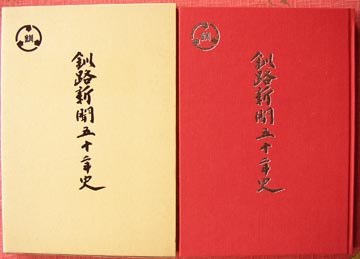 釧
釧路新聞五十年史
釧
釧路新聞五十年史